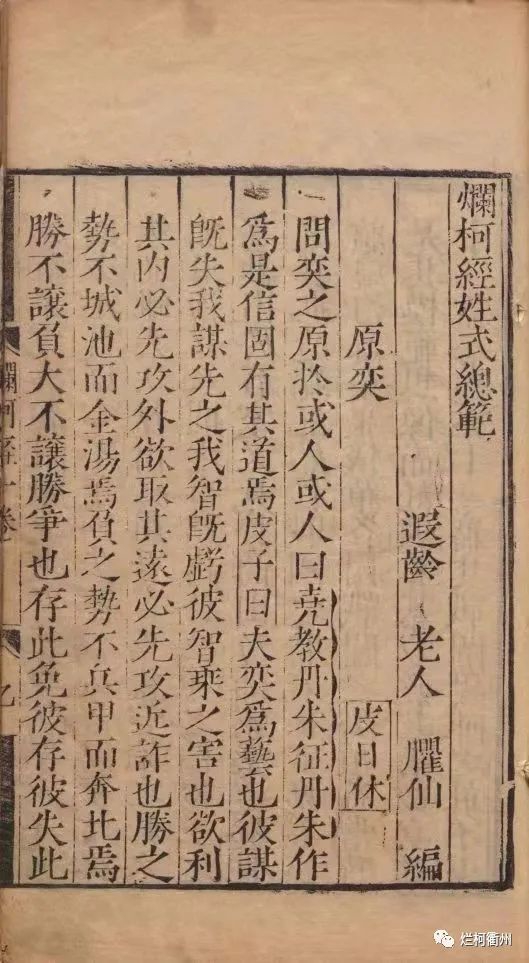 爛柯經姓式總範
遐齡　老人　臞仙　編
原奕　皮日休
問奕之原扵或人或人曰堯教丹朱征丹朱作
爲是信固有其道焉皮子曰夫奕爲藝也彼謀
旣失我謀先之我智旣虧彼智乘之害也欲利
其内必先攻外欲取其遠必先攻近詐也勝之
勢不城池而金湯焉負之勢不兵甲而奔北焉
勝不讓負大不讓勝爭也存此免彼存彼失此
爛柯經一卷　九
烂柯衢州